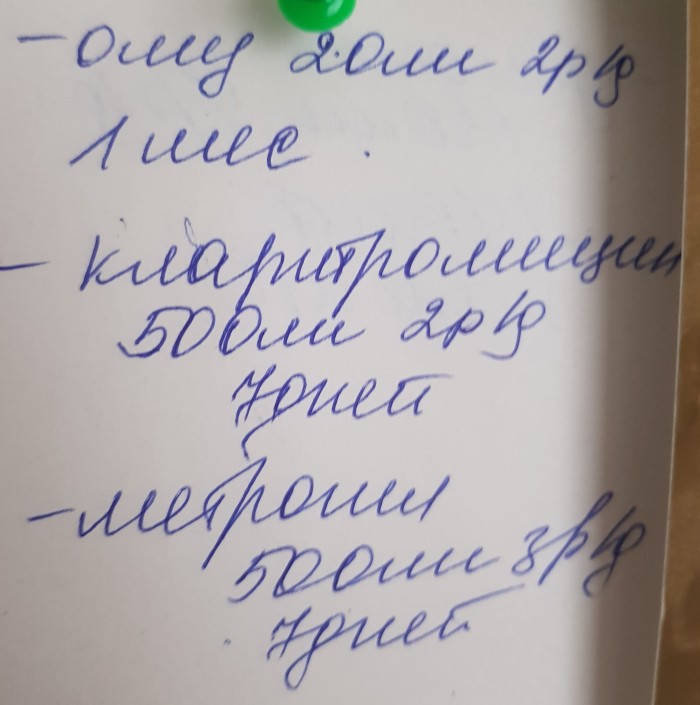 - омез 20мг 2р/д
1 мес.
- кларитромицин
500мг 2р/д
7 дней
- метрогил
500мг 3р/д
7 дней